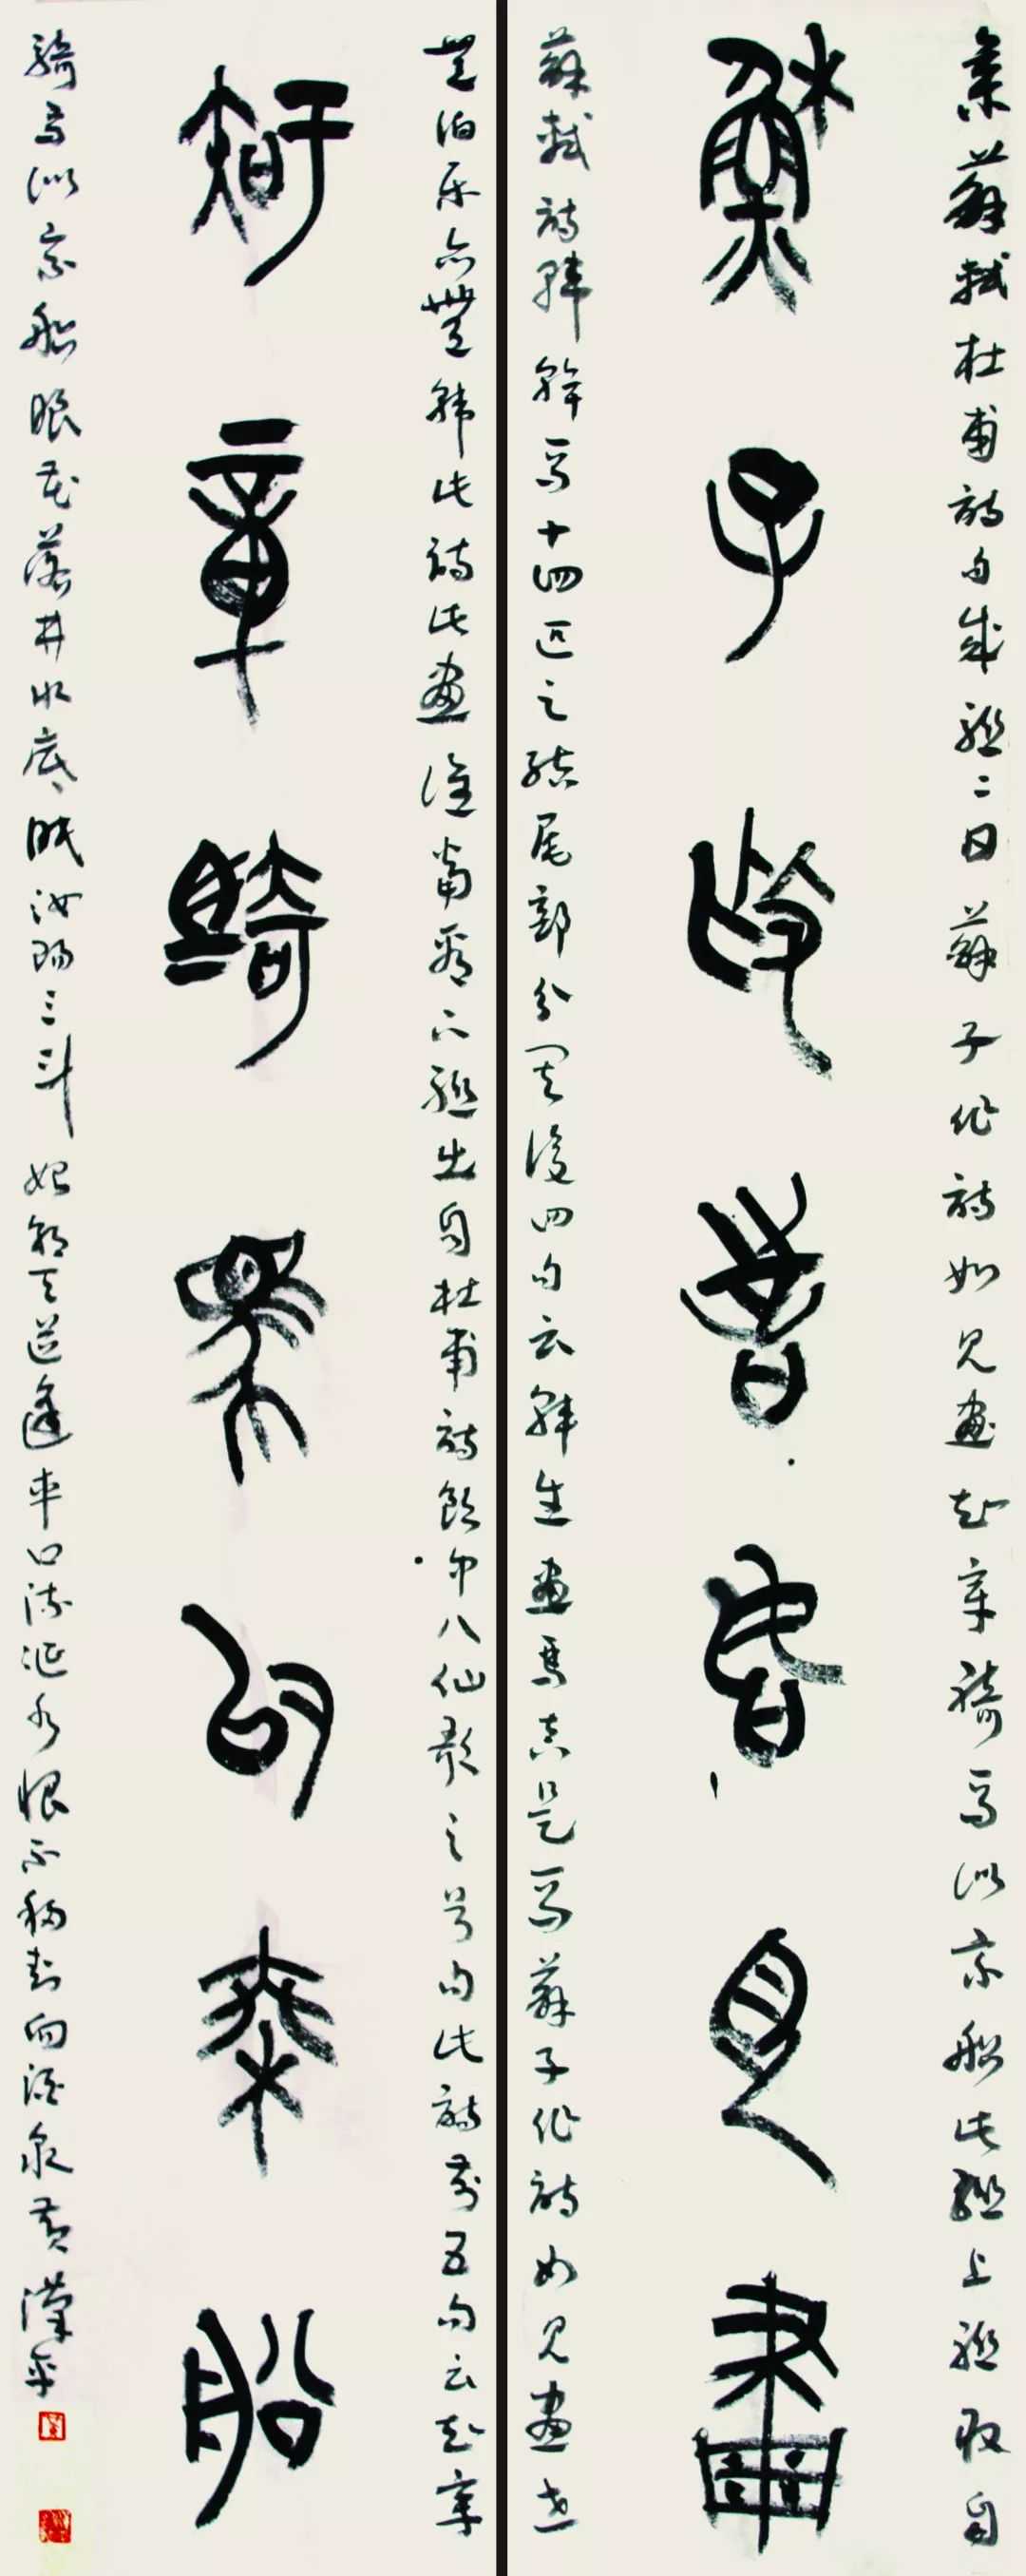 集蘇軾杜甫詩句成聯二曰蘇子作詩如見畫知章騎馬似乘船此聯上聯取自
蘇子作詩如見畫
蘇軾詩韓幹馬十四匹之結尾部分其後四句云韓生畫馬真是馬蘇子作詩如見畫世
無伯樂亦無韓此詩此畫誰當看下聯出自杜甫詩飲中八仙歌之首句此詩前五句云知章
知章騎馬似乘船
騎馬似乘船眼花落井水底眠汝陽三斗始朝天道逢車口流涎恨不移封向酒泉黃漢平